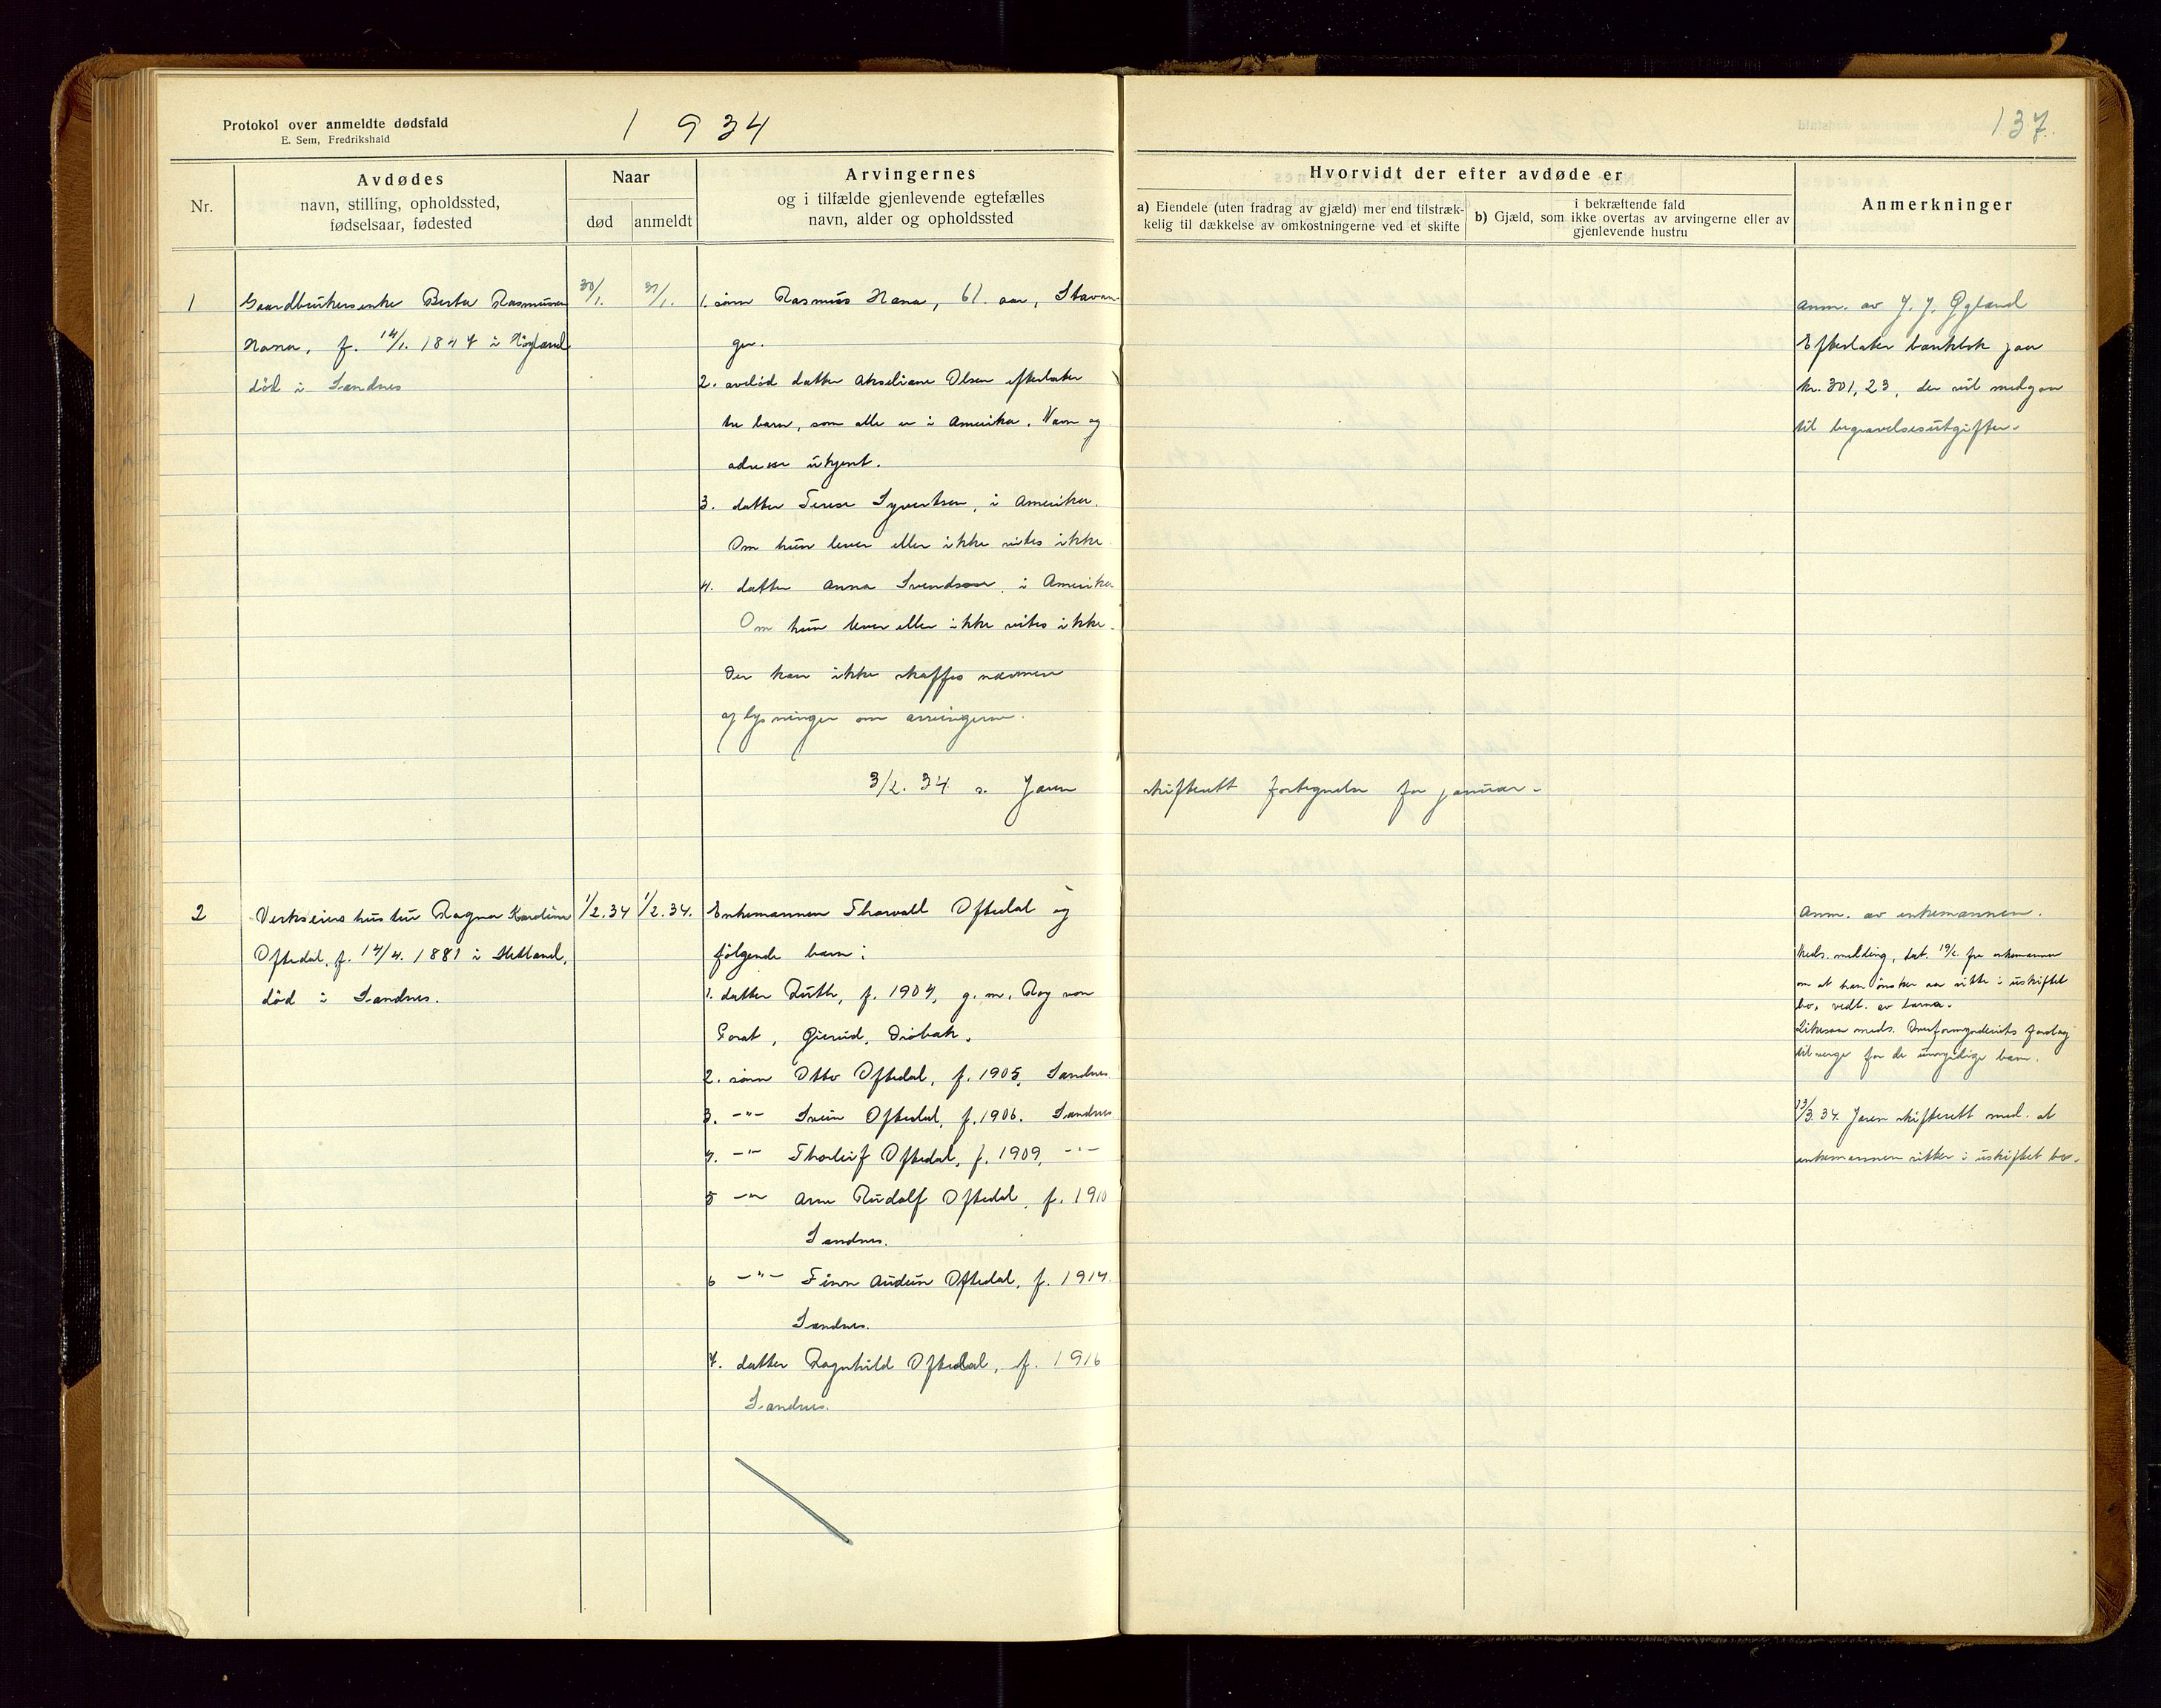 Protokol over anmeldte dødsfald
E. Sem, Fredrikshald
1934
137.
Nr.
Avdødes
navn, stilling, opholdssted,
fødselsaar, fødested
Naar
død
anmeldt
Arvingernes
og i tilfælde gjenlevende egtefælles
navn, alder og opholdssted
Hvorvidt der efter avdøde er
a) Eiendele (uten fradrag av gjæld) mer end tilstræk-
kelig til dækkelse av omkostningerne ved et skifte
i bekræftende fald
b) Gjæld, som ikke overtas av arvingerne eller av
gjenlevende hustru
Anmerkninger
1
Gaardbrukerenke Berta Rasmussen
Hana, f. 14/1. 1847 i Høyland
død i Sandnes
30/1.
31/1.
1. sønn Rasmus Hana, 61. aar, Stavan-
ger.
2. avdød datter Akseliane Olsen efterlater
tre barn, som alle er i Amerika. Navn og
adresse ukjent.
3. datter Terese Syvertsen, i Amerika.
Om hun lever eller ikke vites ikke
4. datter Anna Svendsen, i Amerika
Om hun lever eller ikke vites ikke.
Der kan ikke skaffes nærmere
oplysninger om arvingerne.
anm. av J. J. Øgland
Efterlater bankbok paa
kr. 301,23, der vil medgaa
til begravelsesutgifter.
3/2. 34 s. Jæren skifterett fortegnelse for januar.
2
Verkseiers hustru Ragna Karoline
Oftedal, f. 14/4. 1881 i Hetland,
død i Sandnes.
1/2.34
1/2.34.
Enkemannen Thorvald Oftedal og
følgende barn:
1. datter Ruth, f. 1904, g. m. Roy von
Porat, Gjerud, Drøbak.
2. sønn Otto Oftedal, f. 1905, Sandnes.
3. -"- Svein Oftedal, f. 1906. Sandnes
4. -"- Thorleif Oftedal, f. 1909, -"-
5 -"- Arne Rudolf Oftedal, f. 1910
Sandnes.
6 -"- Finn Audun Oftedal, f. 1914.
Sandnes.
7. datter Ragnhild Oftedal, f. 1916
Sandnes.
Anm. av enkemannen.
Meds. melding, dat. 19/2. fra enkemannen
om at han ønsker aa sitte i uskiftet
bo, vedt. av barna.
Likesaa meds. Overformynderiets forslag
til verge for de umyndige barn.
13/3.34. Jæren skifterett med. at
enkemannen sitter i uskiftet bo.